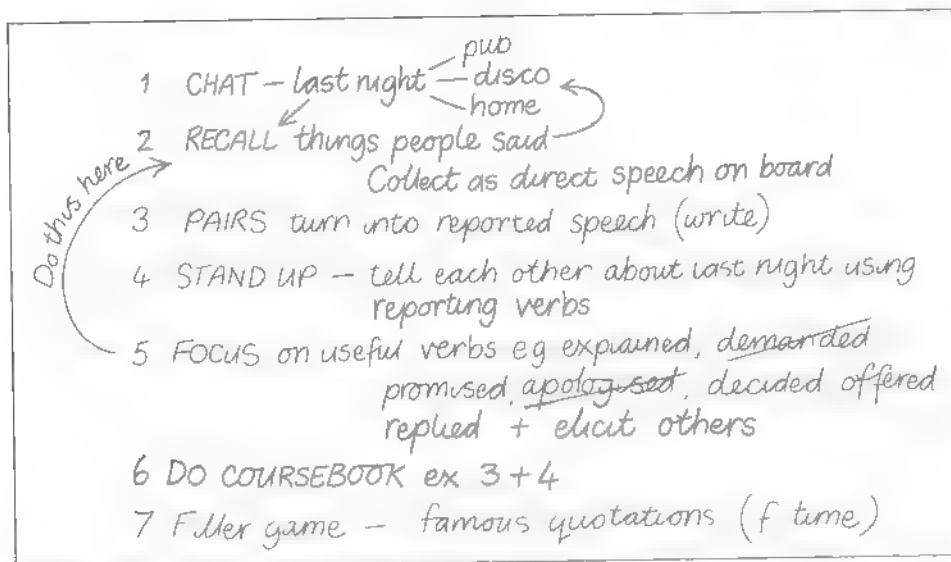 pub
1 CHAT – last night – disco
home
2 RECALL things people said
Collect as direct speech on board
Do this here
3 PAIRS turn into reported speech (write)
4 STAND UP – tell each other about last night using
reporting verbs
5 FOCUS on useful verbs eg explained, demanded
promised, apologised, decided offered
replied + elicit others
6 DO COURSEBOOK ex 3 + 4
7 Filler game – famous quotations (if time)